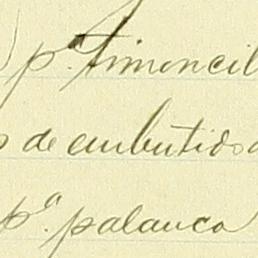 ) pª timoncil
s de embutidos
pª. palanca